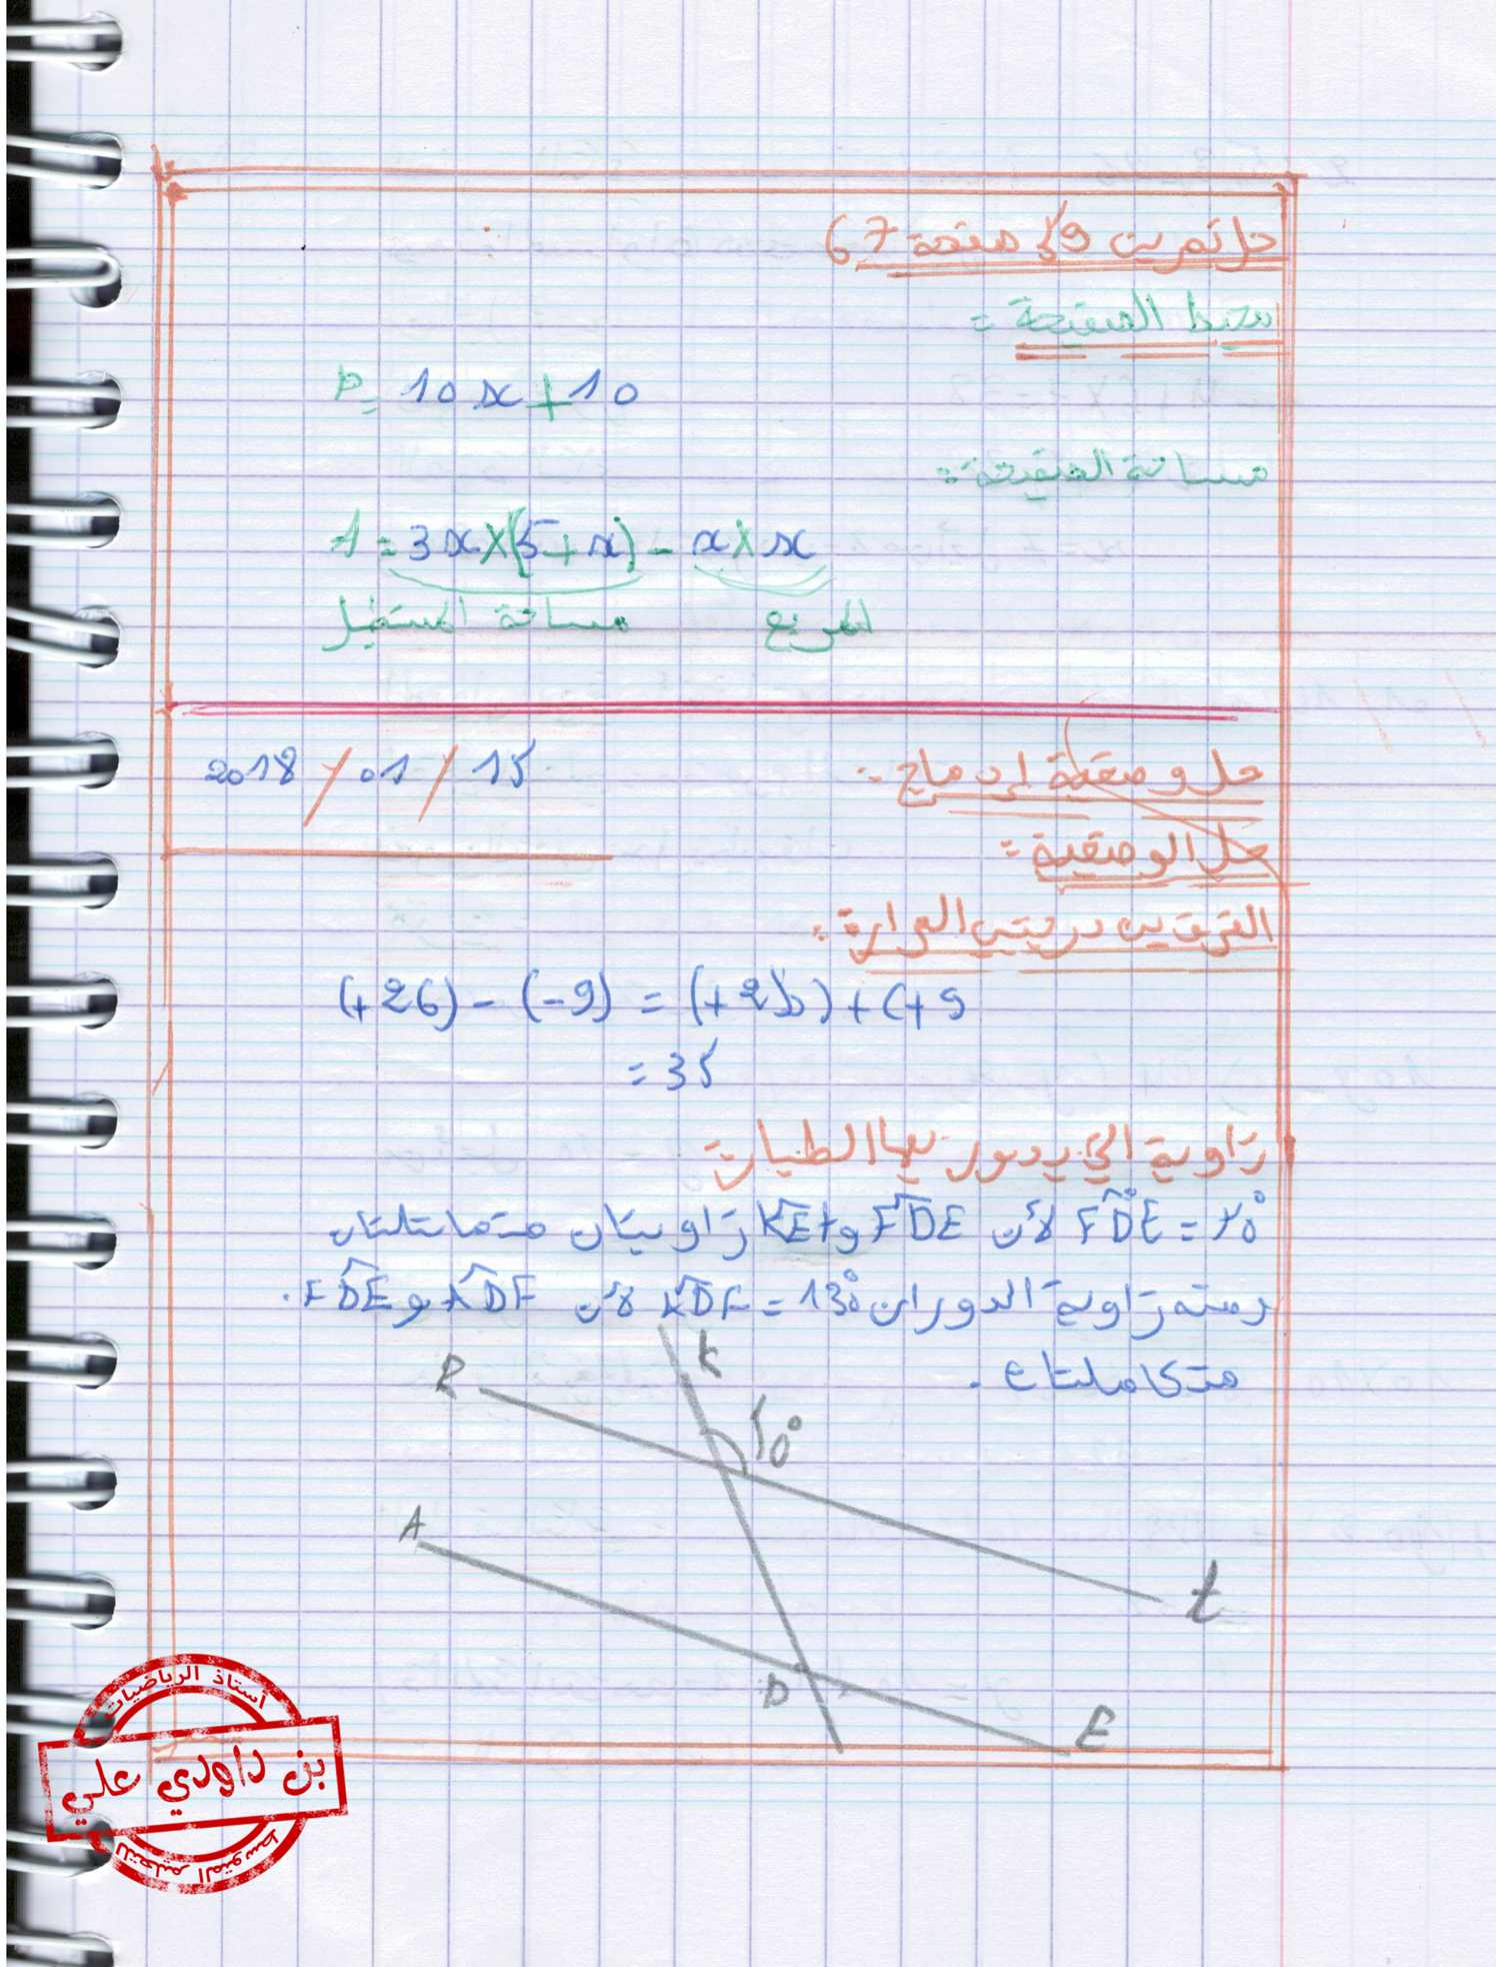 حل تمرين 19 صفحة 67
محيط الصفيحة =
P = 10x + 10
مساحة الصفيحة:
A = 3x×(5+x) - x×x
مساحة المستطيل المربع
حل وضعية إدماج :- 15 / 01 / 2018
حل الوضعية =
الفرق بين درجتي الحرارة:
(+26) - (-9) = (+26) + (+9
= 35
زاوية التي يدور بها الطيار
FDE = 50° لأن FDE و KEt زاويتان متماثلتان
ومنه زاوية الدوران KDF = 130° لأن KDF و FDE.
متكاملتان.
K
R
50°
A
t
D
E
أستاذ الرياضيات
بن داودي علي
للتعليم المتوسط